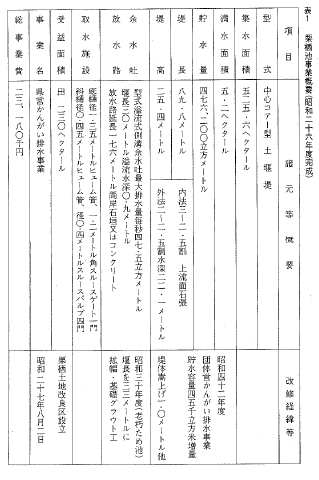 表1　栗柄池事業概要(昭和二十六年度完成)
項目　諸元等概要　改修経緯等
型式　中心コアー型土堰堤
集水面積　五二五・六ヘクタール
満水面積　五・二ヘクタール　昭和四十二年度
貯水量　四七六、二〇〇立方メートル　団体営かんがい排水事業
貯水容量四五千立方米増量
堤長　八九・八メートル　内法三—二・五割　上流面石張
堤高　二五・四メートル　外法二—二・五割水深二二・一メートル　堤体嵩上げ一・〇メートル他
余水吐　型式溢流式側溝余水吐最大排水量毎秒四七・五立方メートル　昭和三十年度(老朽ため池)
堰長三〇メートル溢流水深〇・九メートル　堰長を二三メートルに
放水路　放水路延長一七〇メートル両岸石垣又はコンクリート　拡幅・基礎グラウト工
取水施設　底樋径一・三五メートルヒューム管、一・二メートル角スルースゲート一門
斜樋径〇・四五メートルヒューム管、径〇・四メートルスルースバルブ四門
受益面積　田　二三〇ヘクタール　栗柄土地改良区設立
事業名　県営かんがい排水事業　昭和二十七年八月二日
総事業費　二三、一八〇千円